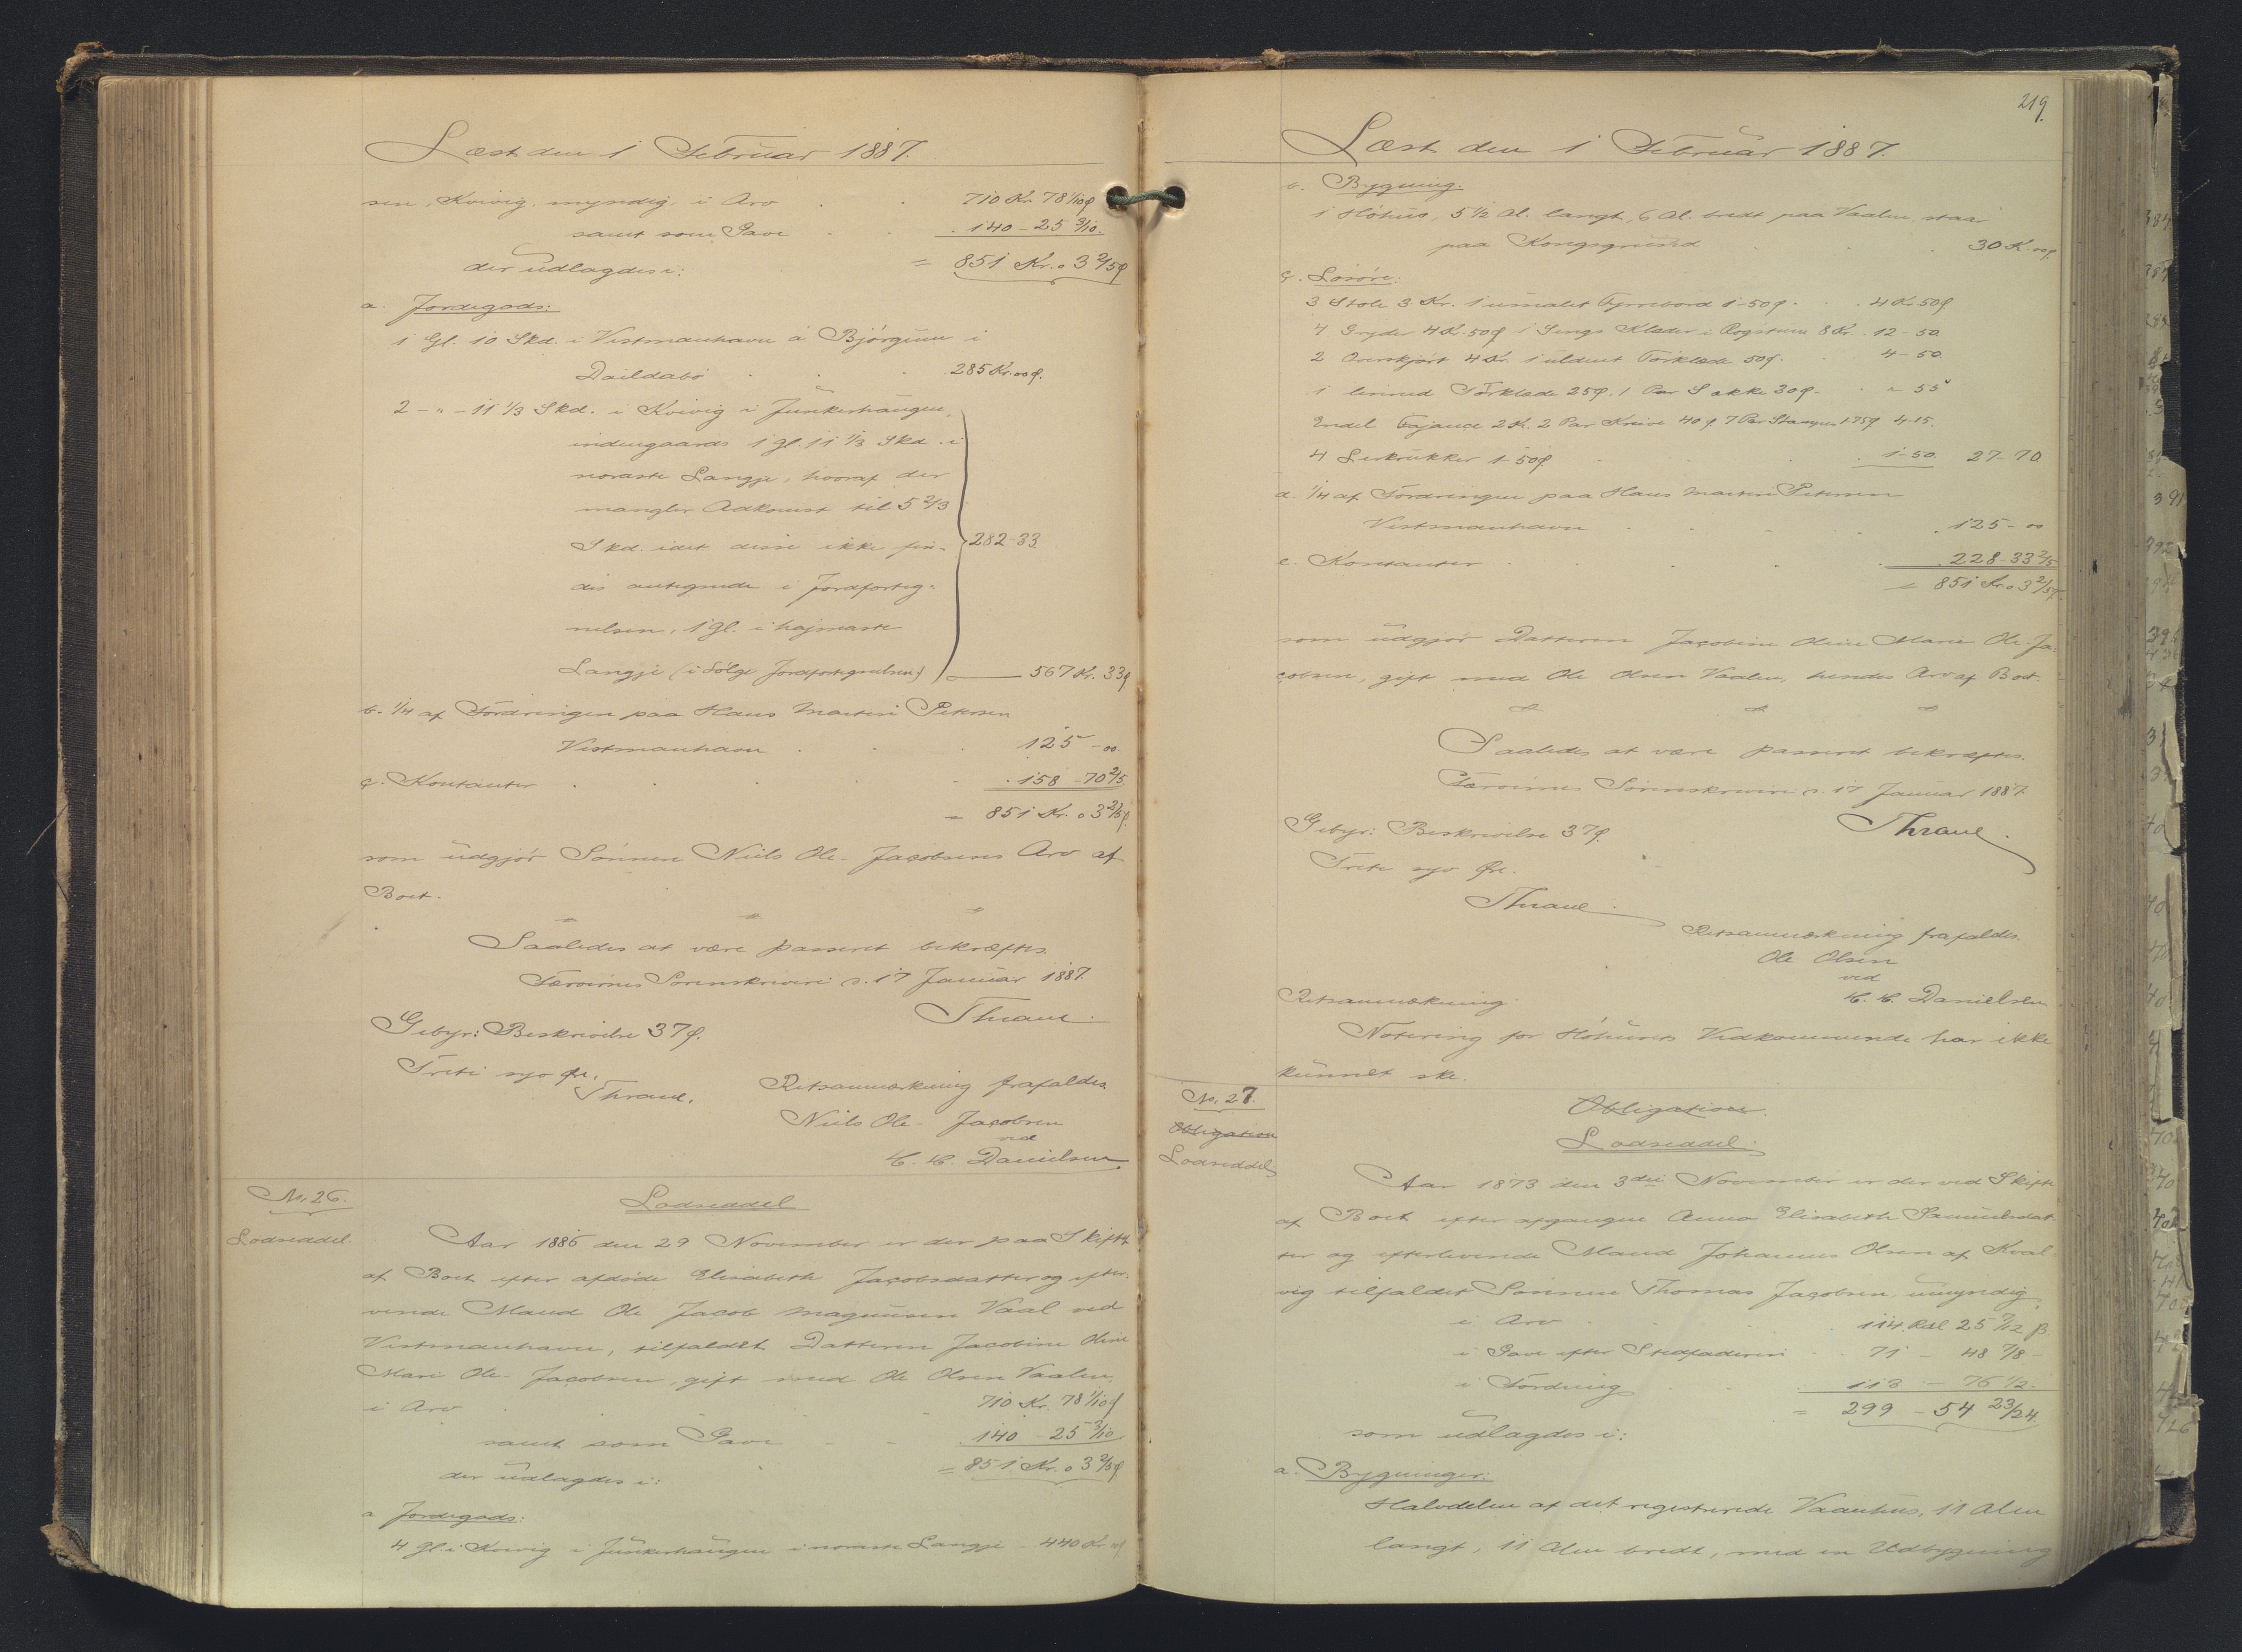 Læst den 1 Februar 1887.
sen, Kvivig, myndig, i Arv 710 Kr. 78 1/10 ø
samt som Gave 140 - 25 3/10.
der udlagdes i: = 851 Kr. 03 2/5 ø
a. Jordegods:
1 Gl. 10 Skd. i Vestmanhavn á Bjørgum i
Daildabö 285 Kr. 00 ø.
2 - " - 11 1/3 Skd. i Kvivig i Junkerhaugen,
indengaards 1 gl. 11 1/3 Skd. i
noraste Langje, hvoraf der
mangler Adkomst til 5 2/3
Skd. idet disse ikke fin- 282-33
des antegnede i Jordforteg-
nelsen, 1 gl. i hajmaste
Langje (i Følge Jordfortegnelsen) 567 Kr. 33 ø
b. 1/4 af Fordringen paa Hans Martin Petersen
Vestmanhavn 125 - 00.
c. Kontanter 158 - 70 2/5
= 851 Kr. 03 2/5 ø.
som udgjør Sønnen Niels Ole-Jacobsens Arv af
Boet.
Saaledes at være passeret bekræftes.
Færøernes Sorenskriveri d. 17 Januar 1887.
Thrane.
Gebyr: Beskrivelse 37 ø.
Treti syv Øre.
Thrane.
Retsanmærkning frafaldes
Niels Ole-Jacobsen
ved
C. C. Danielsen
No. 26.
Lodseddel.
Lodseddel
Aar 1886 den 29 November er der paa Skifte
af Boet efter afdøde Elisabeth Jacobsdatter og efter-
vende Mand Ole Jacob Magnusen Vaal ved
Vestmanhavn, tilfaldet Datteren Jacobine Oline
Marie Ole-Jacobsen, gift med Ole Olsen Vaalen,
i Arv 710 Kr. 78 1/10 ø
samt som Gave 140 - 25 3/10
der udlagdes i: = 851 Kr. 03 2/5 ø
a Jordegods:
4 gl. i Kvivig i Junkerhaugen i noraste Langje - 440 Kr. 00 ø
219.
Læst den 1 Februar 1887.
b. Bygning.
1 Høhus, 5 1/2 Al. langt, 6 Al. bredt paa Vaalen, staar
paa Kongsgrund 30 K. 00 ø.
c. Løsøre:
3 Stole 3 Kr. 1 umalet Fyrrebord 1-50 ø. 4 Kr. 50 ø
4 Gryder 4 Kr. 50 ø 1 Sengs Klæder i Rogstuen 8 Kr. 12 - 50
2 Overskjørt 4 Kr. 1 uldent Forklæde 50 ø. 4 - 50
1 linned Forklæde 25 ø. 1 Par Sokke 30 ø. " 55
Endel Fajance 2 K. 2 Par Knive 40 ø 7 Par Stamper 1.75 ø 4-15.
4 Lerkrukker 1-50 ø 1-50. 27-70
d. 1/4 af Fordringen paa Hans Martin Petersen
Vestmanhavn 125 - 00
e. Kontanter 228 - 33 2/5
= 851 Kr. 03 2/5 ø.
som udgjør Datteren Jacobine Oline Marie Ole-Ja-
cobsen, gift med Ole Olsen Vaalen, hendes Arv af Boet.
Saaledes at være passeret bekræftes.
Færøernes Sorenskriveri d. 17 Januar 1887.
Thrane.
Gebyr: Beskrivelse 37 ø.
Treti syv Øre.
Thrane.
Retsanmærkning frafaldes.
Ole Olsen
ved
C. C. Danielsen
Retsanmækning.
Notering for Høhusets Vedkommende har ikke
kunnet ske.
No. 27.
Obligation
Lodseddel
Obligation.
Lodseddel.
Aar 1873 den 3die November er der ved Skifte
af Boet efter afgangne Anna Elisabeth Samuelsdat-
ter og efterlevende Mand Johannes Olsen af Kval-
vig tilfaldet Sønnen Thomas Jacobsen, umyndig,
i Arv 114. Rdl 25 7/12 ß.
i Gave efter Stedfaderen 71 - 48 7/8 -
i Fordring 113 - 76 1/2.
= 299 - 54 23/24.
som udlagdes i:
a. Bygninger:
Halvdelen af det registrerede Vaanhus, 11 Alen
langt, 11 Alen bredt, med en Udbygning